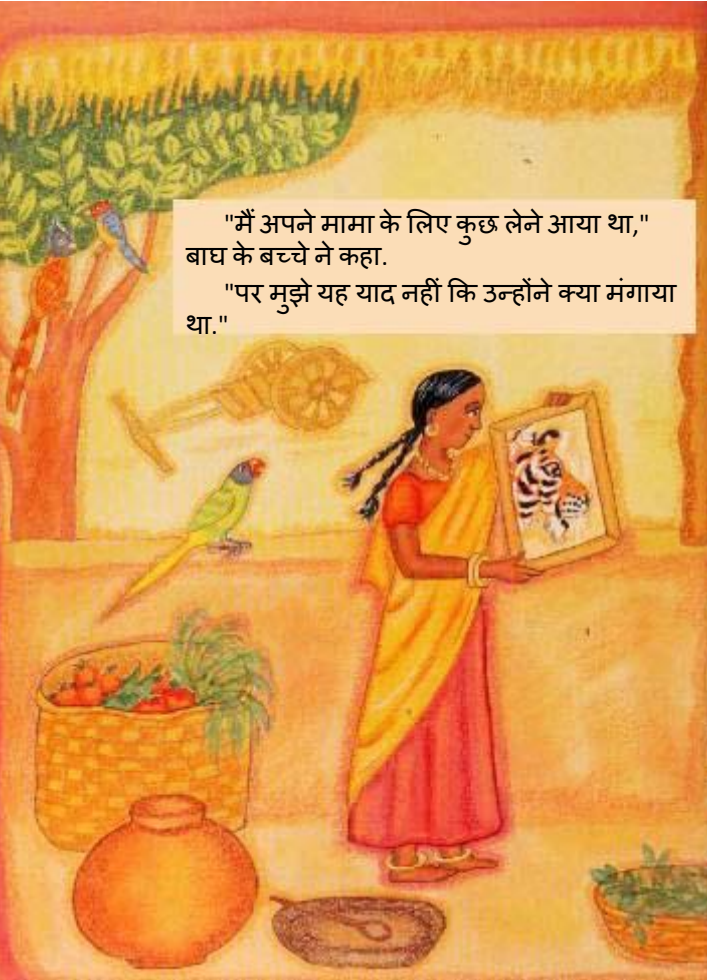 "मैं अपने मामा के लिए कुछ लेने आया था,"
बाघ के बच्चे ने कहा.
"पर मुझे यह याद नहीं कि उन्होंने क्या मंगाया
था."